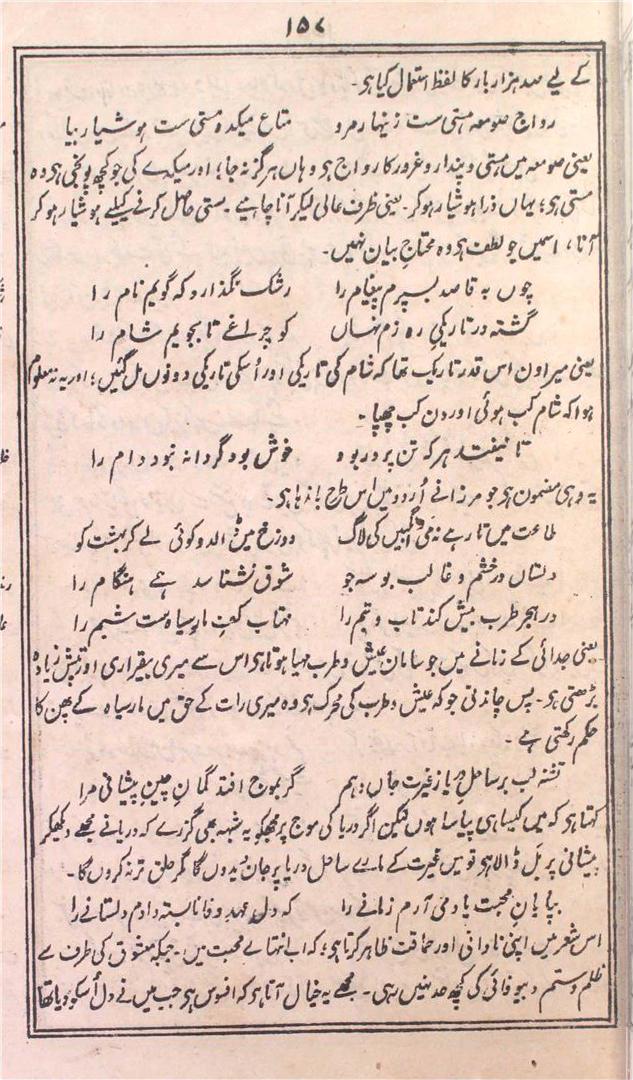 ۱۵۷
کے لیے صد ہزار بار کا لفظ استعمال کیا ہی۔
رواج صومعہ ہستی ست زینہار مرو متاع میکدہ مستی ست ہوشیار بیا
یعنی صومعہ میں ہستی و پندار و غرور کا رواج ہی وہاں ہرگز نہ جا؛ اور میکدے کی جو کچھ پونجی ہی وہ
مستی ہی؛ یہاں ذرا ہوشیار ہو کر۔ یعنی ظرف عالی لیکر آنا چاہیے۔ مستی حاصل کرنے کیلئے ہوشیار ہو کر
آنا، اسمیں جو لطف ہی وہ محتاجِ بیان نہیں۔
چوں بہ قاصد بسپرم پیغام را رشک نگذارد کہ گویم نام را
گشتہ در تاریکیِ روزم نہاں کو چراغے تا بجویم شام را
یعنی میرا دن اس قدر تاریک تھا کہ شام کی تاریکی اور اُسکی تاریکی دونوں مل گئیں؛ اور یہ نہ معلوم
ہوا کہ شام کب ہوئی اور دن کب چھپا۔
تا نیفتد ہر کہ تن پرور بود خوش بود گر دانہ نبود دام را
یہ وہی مضمون ہی جو مرزا نے اُردو میں اس طرح باندھا ہی۔
طاعت میں تا رہے نہ می و انگبیں کی لاگ دوزخ میں ڈالدو کوئی لے کر بہشت کو
دلستاں درخشم و غالب بوسہ جو شوق نشناسد ہے ہنگام را
در ہجر طرب بیش کند تاب و تبم را مہتاب کفِ مارِ سیاہ ست شبم را
یعنی جدائی کے زمانے میں جو سامان عیش و طرب مہیا ہوتا ہی اس سے میری بیقراری اور تپش زیادہ
بڑھتی ہی۔ پس چاندنی جو کہ عیش و طرب کی محرک ہی وہ میری رات کے حق میں مار سیاہ کے پھن کا
حکم رکھتی ہے۔
تشنہ لب بر ساحلِ دریا ز غیرت جاں دہم گر بموج افتد گمانِ چینِ پیشانی مرا
کہتا ہی کہ میں کیسا ہی پیاسا ہوں لیکن اگر دریا کی موج پر مجھکو یہ شبہہ بھی گزرے کہ دریا نے مجھے دیکھکر
پیشانی پر بَل ڈالا ہو تو میں غیرت کے مارے ساحل دریا پر جان دیدوں گا مگر حلق تر نہ کروں گا۔
بپایانِ محبت یاد می آرم زمانے را کہ دل عہدِ وفا نابستہ دادم دلستانے را
اس شعر میں اپنی نادانی اور حماقت ظاہر کرتا ہی؛ کہ اب انتہاے محبت میں۔ جبکہ معشوق کی طرف سے
ظلم و ستم و بیوفائی کی کچھ حد نہیں رہی۔ مجھے یہ خیال آتا ہی کہ افسوس ہی جب میں نے دل اُسکو دیا تھا